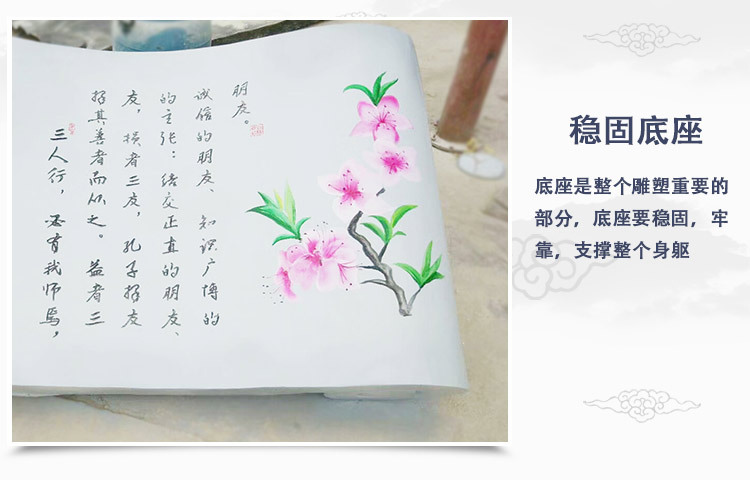 三人行，必有我师焉，
择其善者而从之。益者三
友，损者三友，孔子择友
的主张：结交正直的朋友、
诚信的朋友、知识广博的
朋友。
稳固底座
底座是整个雕塑重要的
部分，底座要稳固，牢
靠，支撑整个身躯